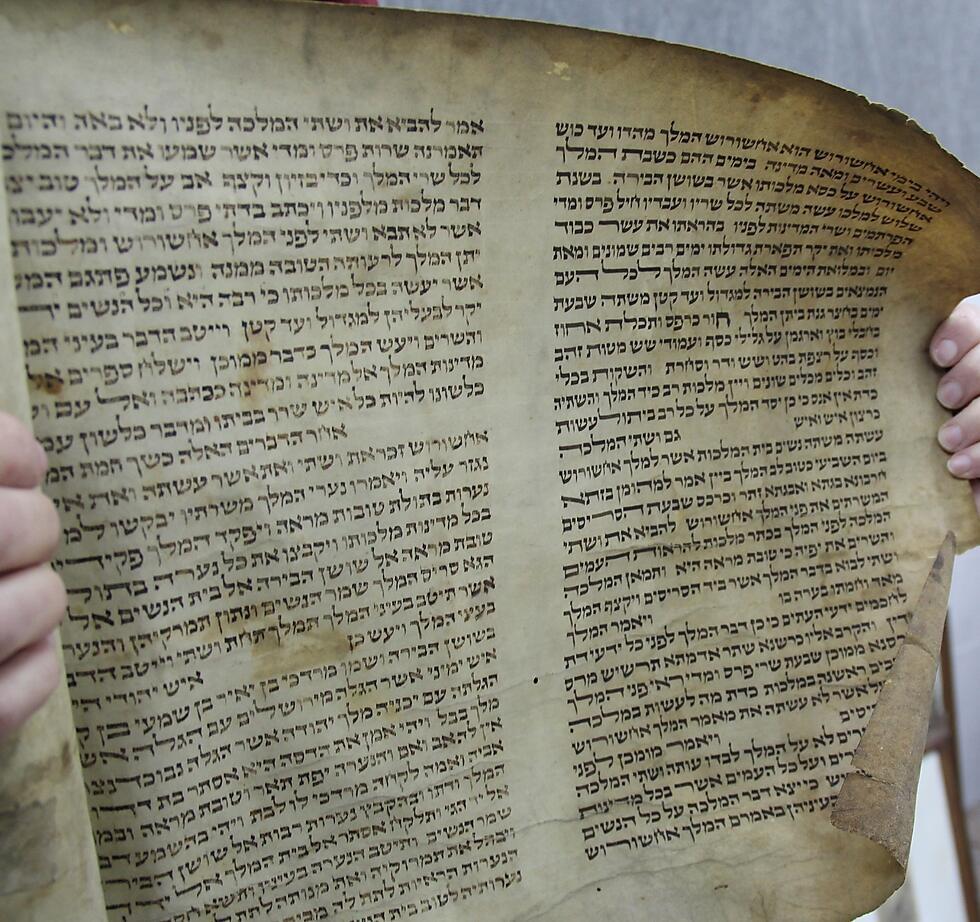 ויהי בימי אחשורוש הוא אחשורוש המלך מהדו ועד כוש
שבע ועשרים ומאה מדינה בימים ההם כשבת המלך
אחשורוש על כסא מלכותו אשר בשושן הבירה בשנת
שלוש למלכו עשה משתה לכל שריו ועבדיו חיל פרס ומדי
הפרתמים ושרי המדינות לפניו בהראתו את עשר כבוד
מלכותו ואת יקר תפארת גדולתו ימים רבים שמונים ומאת
יום ובמלואת הימים האלה עשה המלך לכל העם
הנמצאים בשושן הבירה למגדול ועד קטן משתה שבעת
ימים בחצר גנת ביתן המלך חור כרפס ותכלת אחוז
בחבלי בוץ וארגמן על גלילי כסף ועמודי שש מטות זהב
וכסף על רצפת בהט ושש ודר וסחרת והשקות בכלי
זהב וכלים מכלים שונים ויין מלכות רב כיד המלך והשתיה
כדת אין אנס כי כן יסד המלך על כל רב ביתו לעשות
כרצון איש ואיש גם ושתי המלכה
עשתה משתה נשים בית המלכות אשר למלך אחשורוש
ביום השביעי כטוב לב המלך ביין אמר למהומן בזתא
חרבונא בגתא ואבגתא זתר וכרכס שבעת הסריסים
המשרתים את פני המלך אחשורוש להביא את ושתי
המלכה לפני המלך בכתר מלכות להראות העמים
והשרים את יפיה כי טובת מראה היא ותמאן המלכה
ושתי לבוא בדבר המלך אשר ביד הסריסים ויקצף המלך
מאד וחמתו בערה בו ויאמר המלך
לחכמים ידעי העתים כי כן דבר המלך לפני כל ידעי דת
ודין והקרב אליו כרשנא שתר אדמתא תרשיש מרס
ממוכן שבעת שרי פרס ומדי ראי פני המלך
ראשנה במלכות כדת מה לעשות במלכה
אשר לא עשתה את מאמר המלך אחשורוש
ויאמר מומכן לפני
לא על המלך לבדו עותה ושתי המלכה
ועל כל העמים אשר בכל מדינות
כי יצא דבר המלכה על כל הנשים
בעיניהן באמרם המלך אחשורוש
אמר להביא את ושתי המלכה לפניו ולא באה והיום
תאמרנה שרות פרס ומדי אשר שמעו את דבר המלכה
לכל שרי המלך וכדי בזיון וקצף אם על המלך טוב יצא
דבר מלכות מלפניו ויכתב בדתי פרס ומדי ולא יעבור
אשר לא תבא ושתי לפני המלך אחשורוש ומלכותה
יתן המלך לרעותה הטובה ממנה ונשמע פתגם המלך
אשר יעשה בכל מלכותו כי רבה היא וכל הנשים
יקר לבעליהן למגדול ועד קטן וייטב הדבר בעיני
והשרים ויעש המלך כדבר ממוכן וישלח ספרים אל
מדינות המלך אל מדינה ומדינה ככתבה ואל עם
כלשונו להיות כל איש שרר בביתו ומדבר כלשון עמו
אחר הדברים האלה כשך חמת
אחשורוש זכר את ושתי ואת אשר עשתה ואת
נגזר עליה ויאמרו נערי המלך משרתיו יבקשו
נערות בתולת טובות מראה ויפקד המלך
בכל מדינות מלכותו ויקבצו את כל נערה בתולה
טובת מראה אל שושן הבירה אל בית הנשים אל
הגא סריס המלך שמר הנשים ונתון תמרקיהן והנערה
אשר תיטב בעיני המלך תמלך תחת ושתי וייטב
בעיני המלך ויעש כן איש יהודי
בשושן הבירה ושמו מרדכי בן יאיר בן שמעי בן
איש ימיני אשר הגלה מירושלים עם הגלה
הגלתה עם יכניה מלך יהודה אשר הגלה נבוכדנצר
מלך בבל ויהי אמן את הדסה היא אסתר בת
אין לה אב ואם והנערה יפת תאר וטובת מראה
אביה ואמה לקחה מרדכי לו לבת ויהי בהשמע דבר
המלך ודתו ובהקבץ נערות רבות אל שושן הבירה
אל יד הגי ותלקח אסתר אל בית המלך אל
שמר הנשים ותיטב הנערה בעיניו ותשא
ויבהל את תמרוקיה ואת מנותה לתת
הנערות הראיות לתת לה מבית
נערותיה לטוב בית